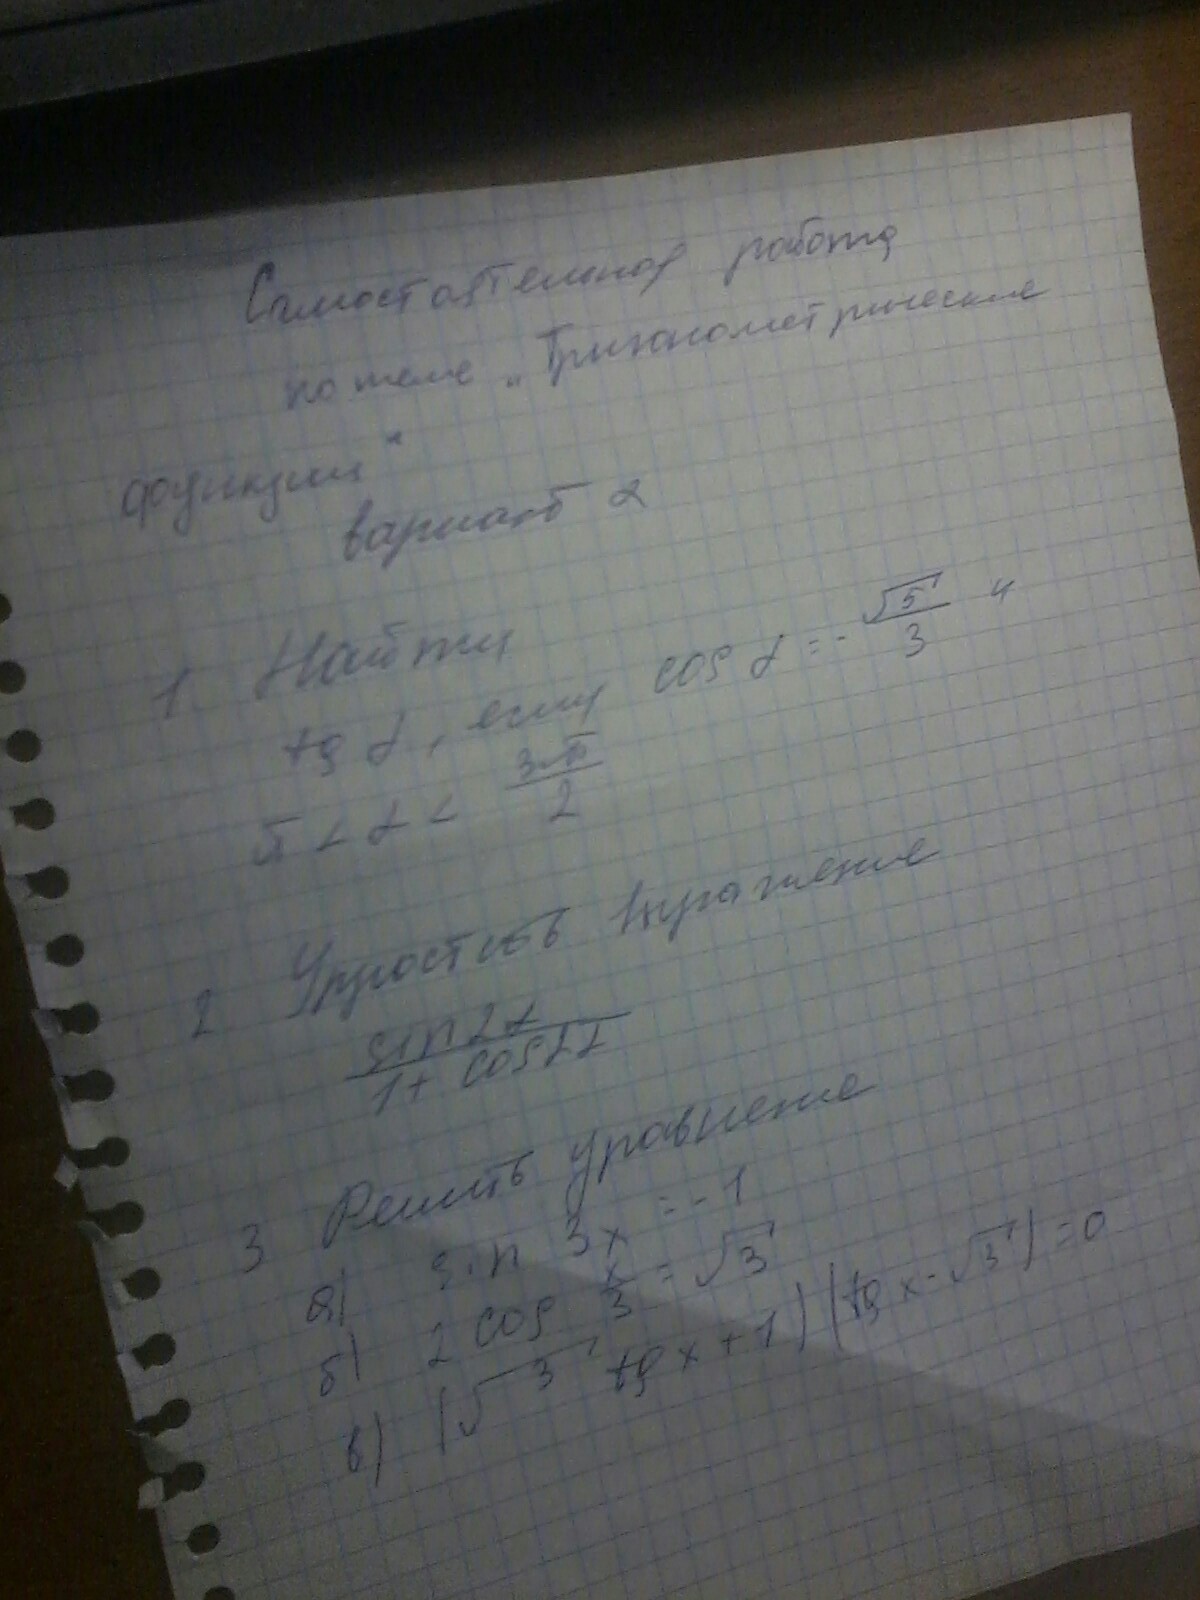 Самостоятельная работа
по теме „Тригонометрические
функции“
вариант 2
1. Найти
tg α, если cos α = - √5/3 и
π < α < 3π/2
2 Упростить выражение
sin 2α
1 + cos 2α
3 Решить уравнение
а) sin 3x = -1
б) 2 cos x/3 = √3
в) (√3 tg x + 1) (tg x - √3) = 0